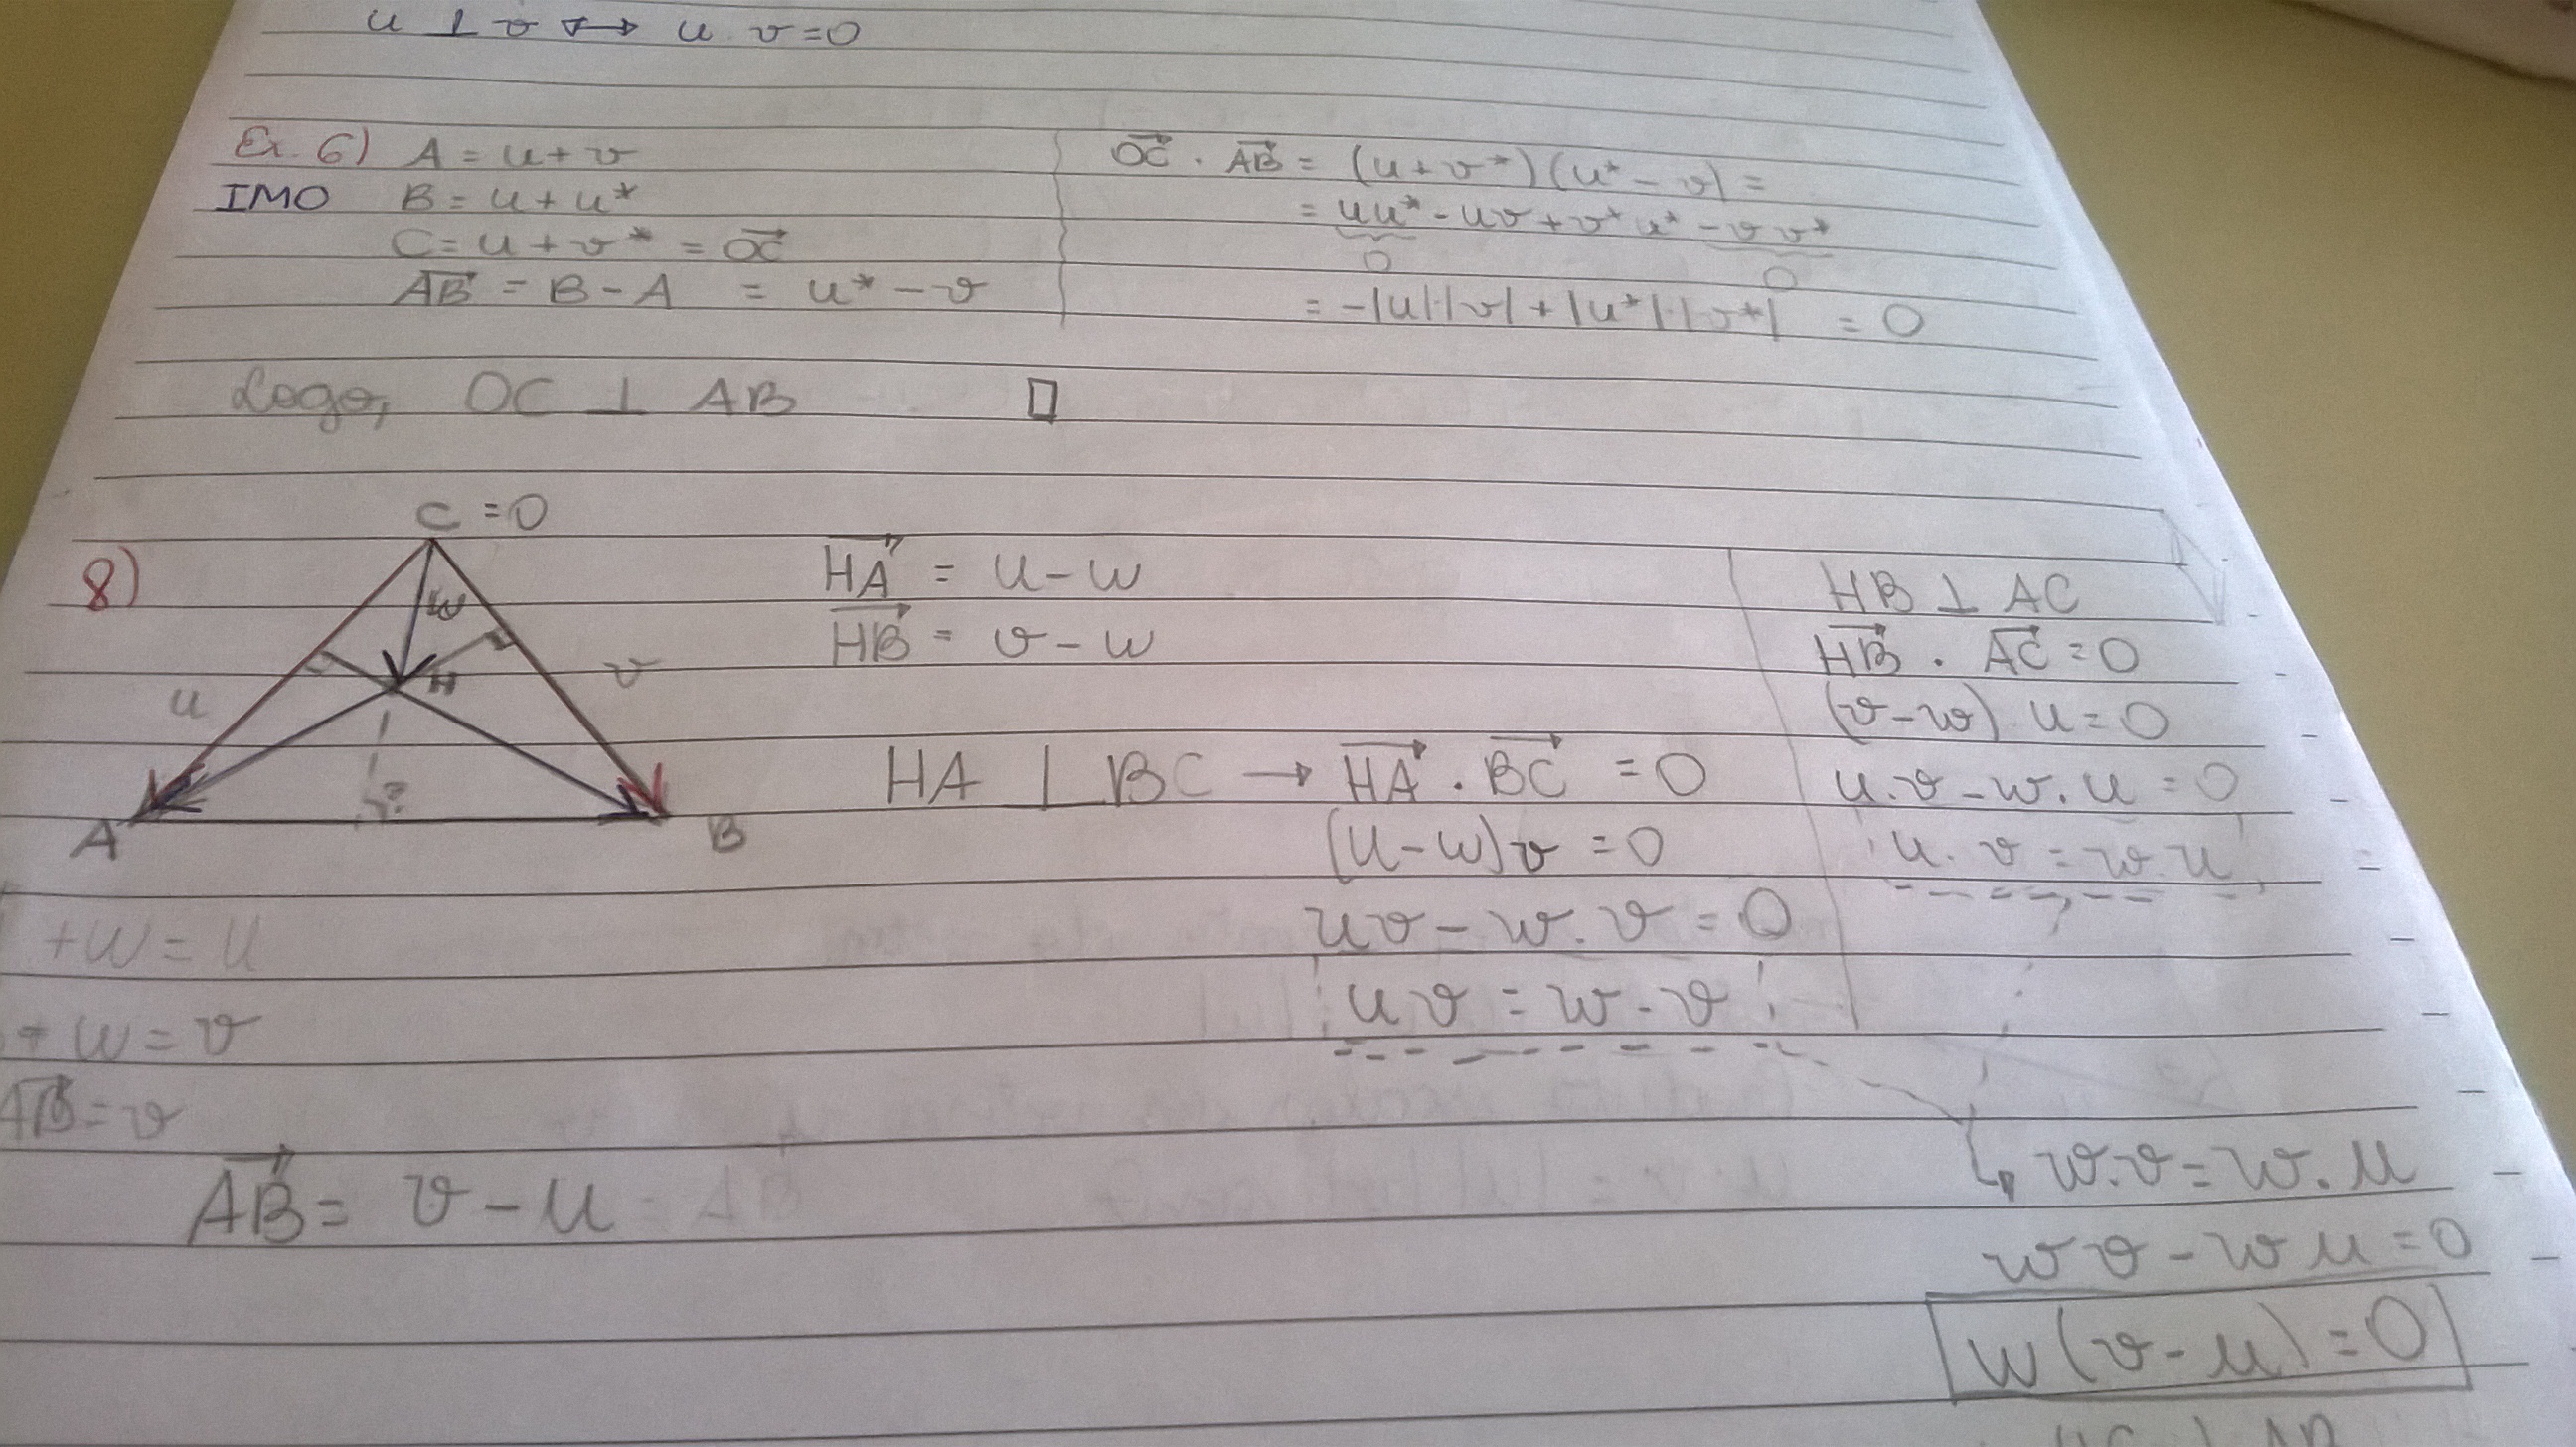 u ⊥ v ↔ u v = 0
Ex. 6) A = u + v
IMO B = u + u*
C = u + v* = OC→
AB→ = B - A = u* - v
OC→ . AB→ = (u + v*)(u* - v) =
= uu* - uv + v*u* - v v*
0 0
= -|u||v| + |u*|.|v*| = 0
Logo, OC ⊥ AB □
8)
C = 0
w
H
u
v
?
A
B
HA→ = u - w
HB→ = v - w
HA ⊥ BC → HA→ . BC→ = 0
(u - w)v = 0
uv - w.v = 0
u v = w . v
HB ⊥ AC
HB→ . AC→ = 0
(v - w) u = 0
u.v - w.u = 0
u. v = w.u
+ w = u
+ w = v
AB→ = v
AB→ = v - u
w.v = w.u
w v - w u = 0
w(v - u) = 0